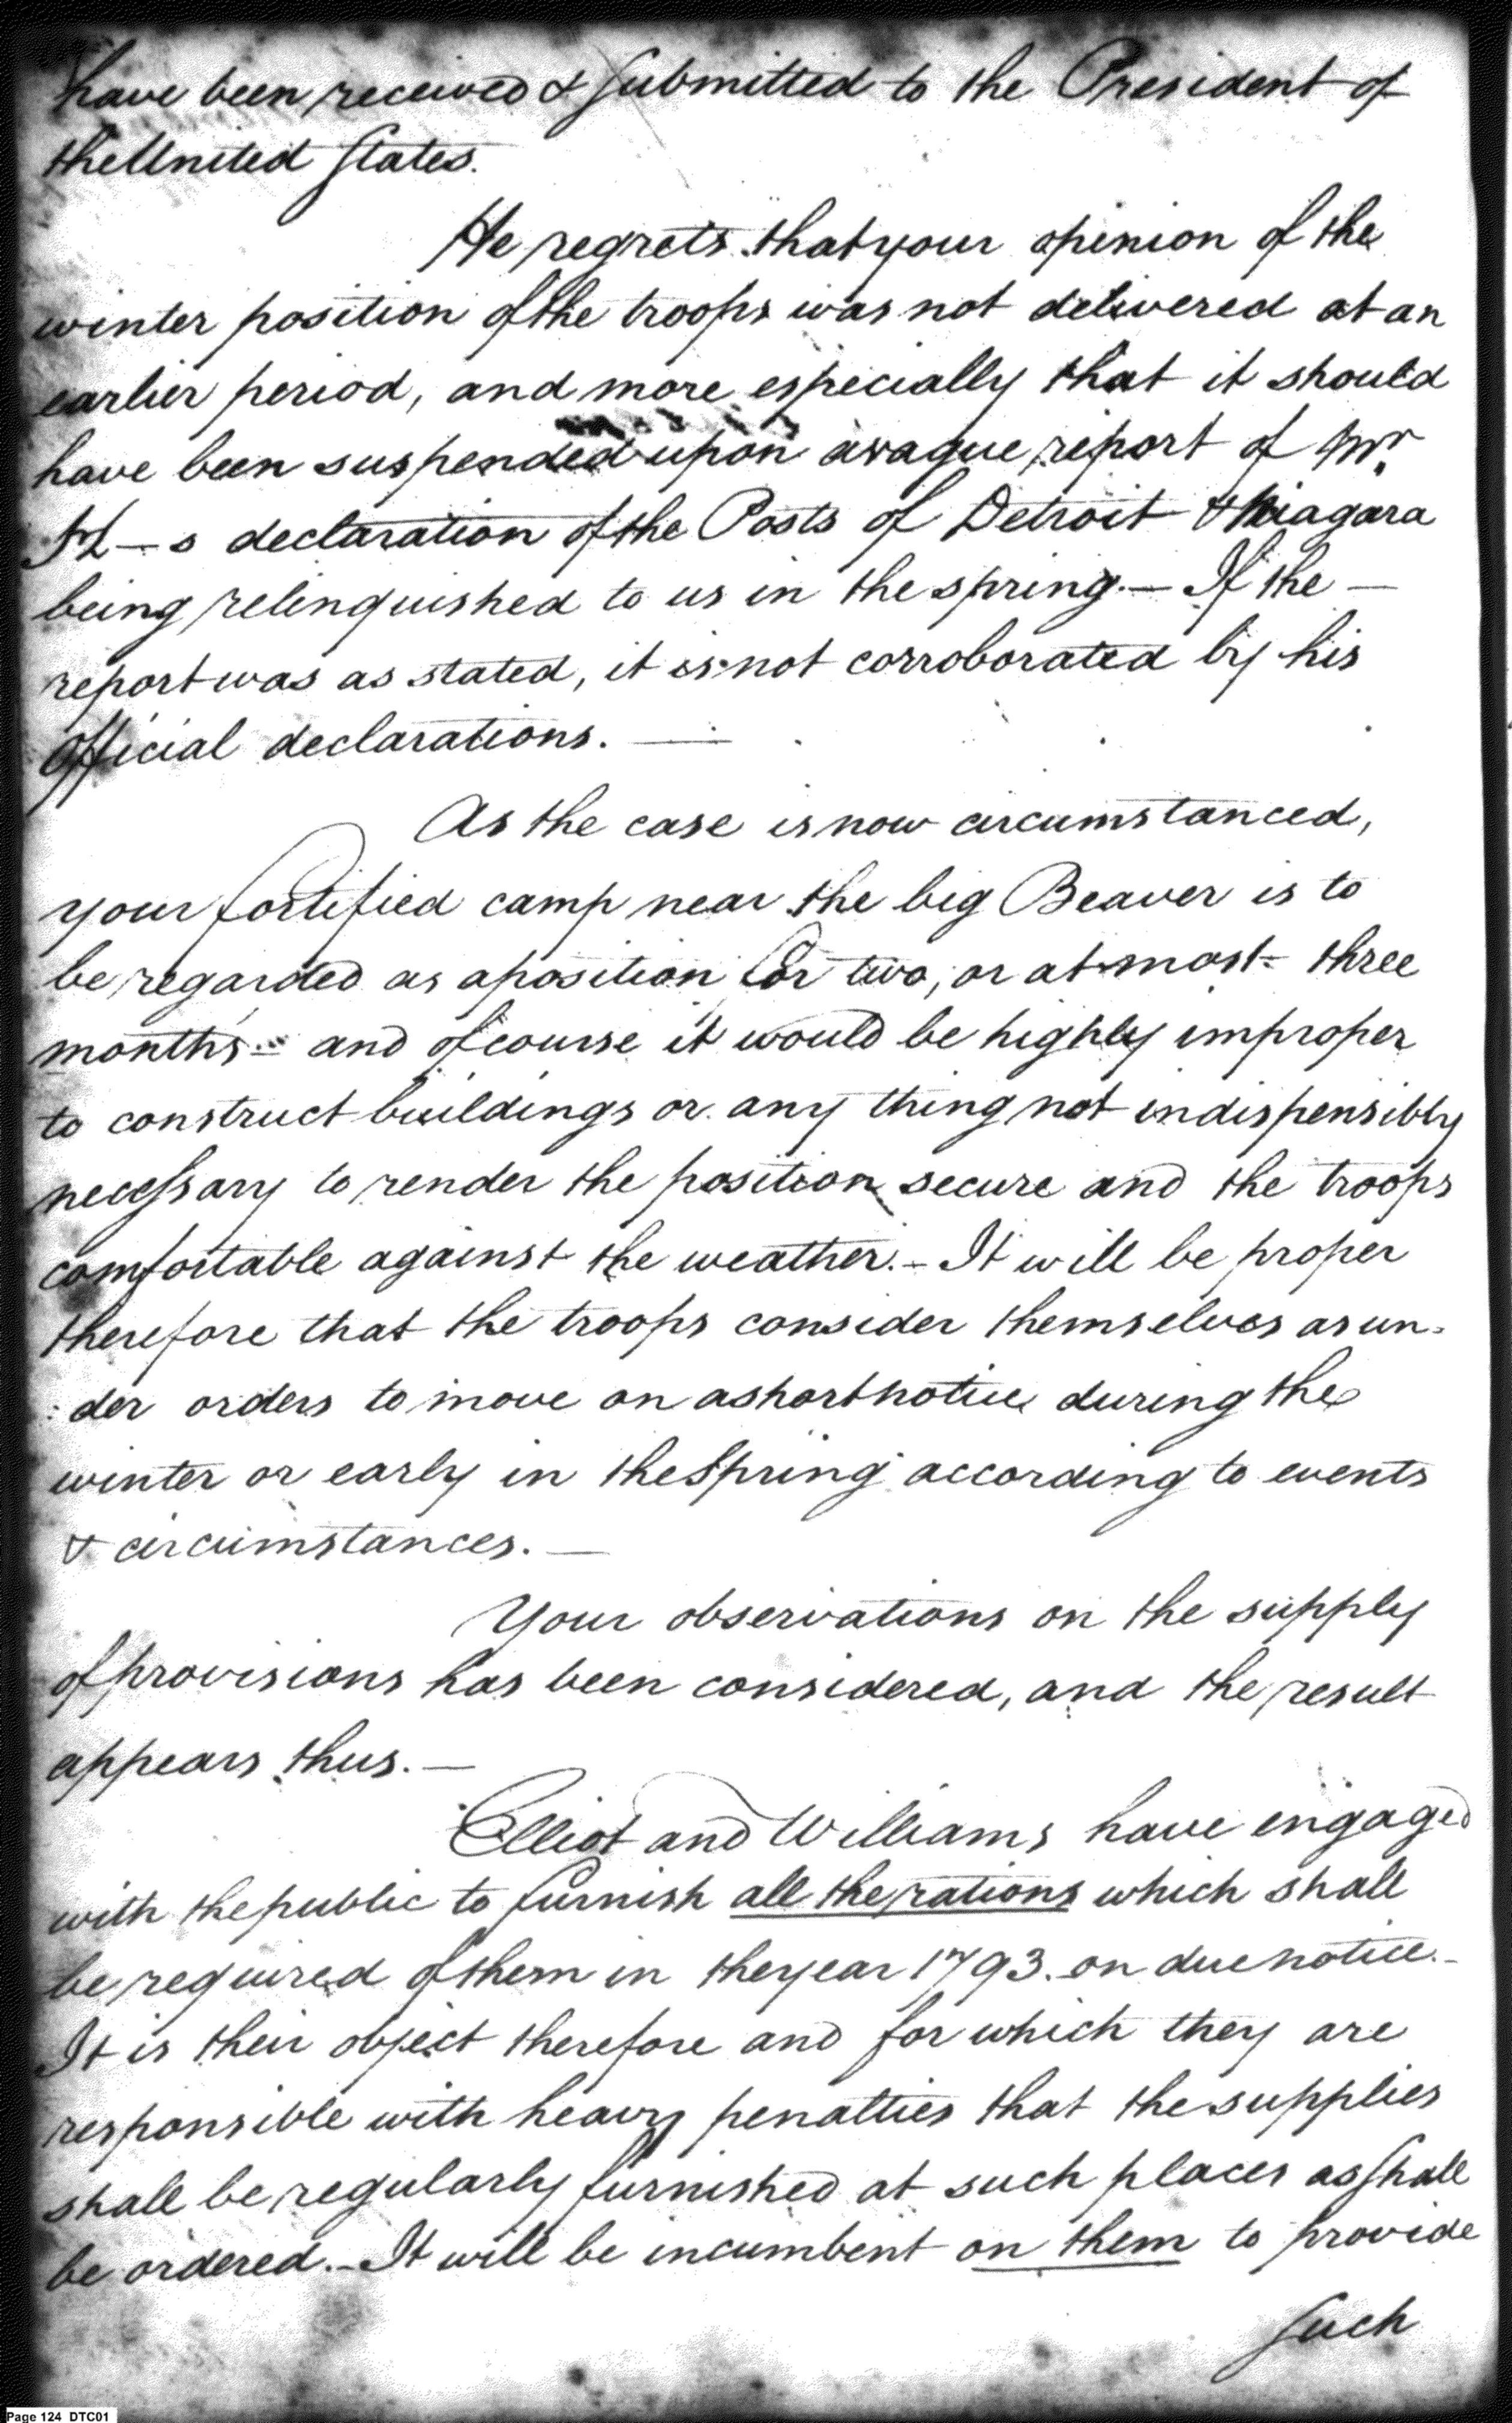 have been received & submitted to the President of
the United States.
He regrets that your opinion of the
winter position of the troops was not delivered at an
earlier period, and more especially that it should
have been suspended upon a vague report of Mr.
H—s declaration of the Posts of Detroit & Niagara
being relinquished to us in the spring.— If the —
report was as stated, it is not corroborated by his
official declarations. —
As the case is now circumstanced,
your fortified camp near the big Beaver is to
be regarded as a position for two, or at most- three
months- and of course it would be highly improper
to construct buildings or any thing not indispensibly
necessary to render the position secure and the troops
comfortable against the weather.- It will be proper
therefore that the troops consider themselves as un-
:der orders to move on a short notice during the
winter or early in the Spring according to events
& circumstances. —
Your observations on the supply
of provisions has been considered, and the result
appears thus. —
Elliot and Williams have engaged
with the public to furnish all the rations which shall
be required of them in the year 1793. on due notice.-
It is their object therefore and for which they are
responsible with heavy penalties that the supplies
shall be regularly furnished at such places as shall
be ordered.- It will be incumbent on them to provide
such
Page 124 DTC01